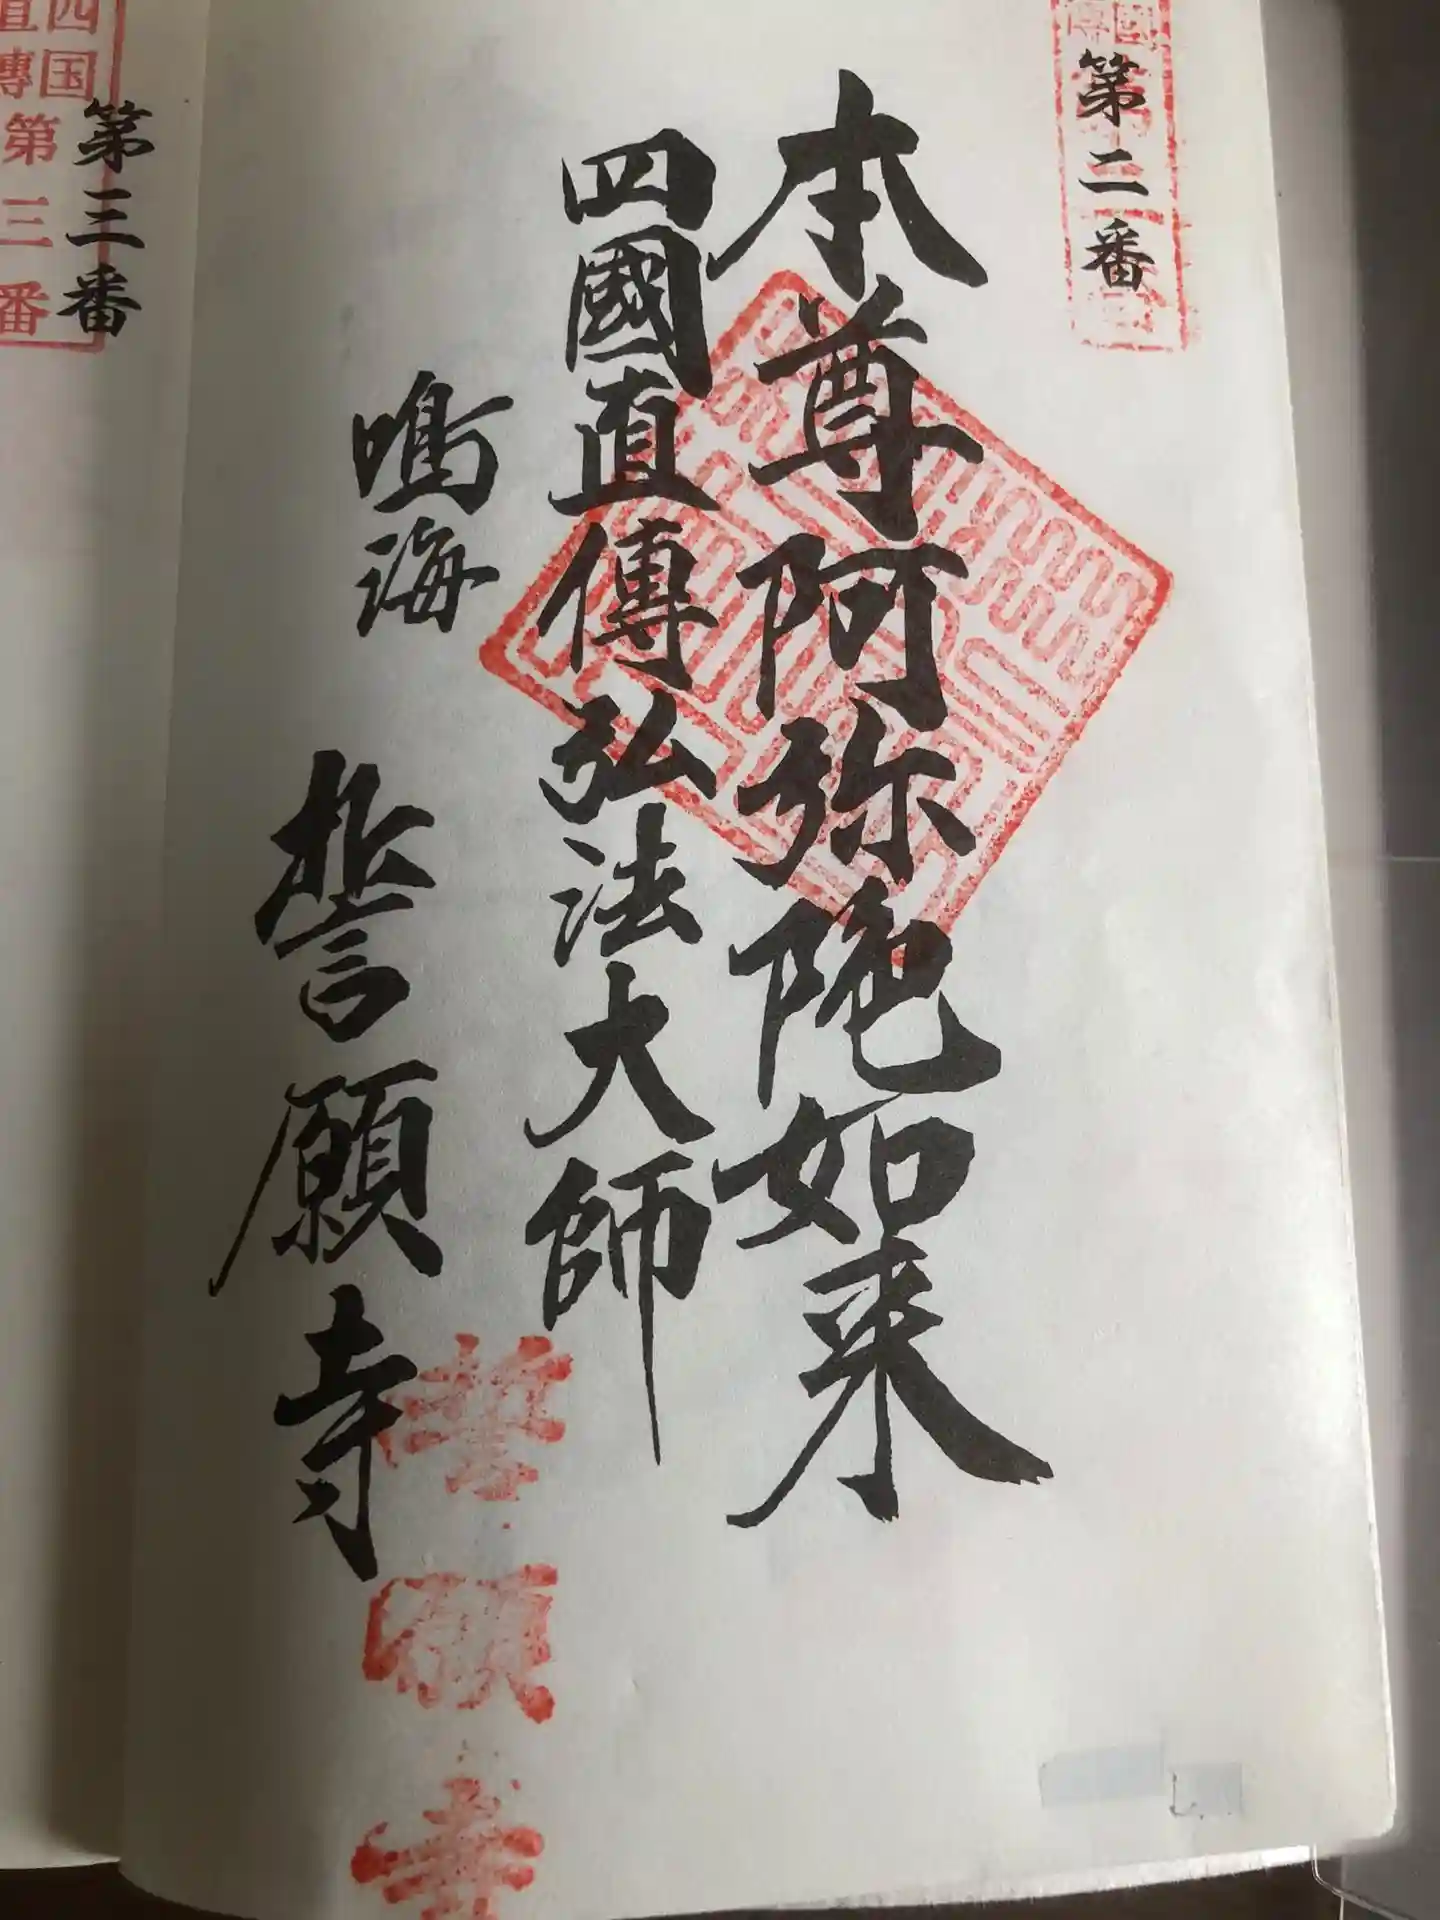 第二番
本尊阿弥陀如来
四國直傳弘法大師
鳴海
誓願寺
誓願寺
第三番
四国
直傳
第三番